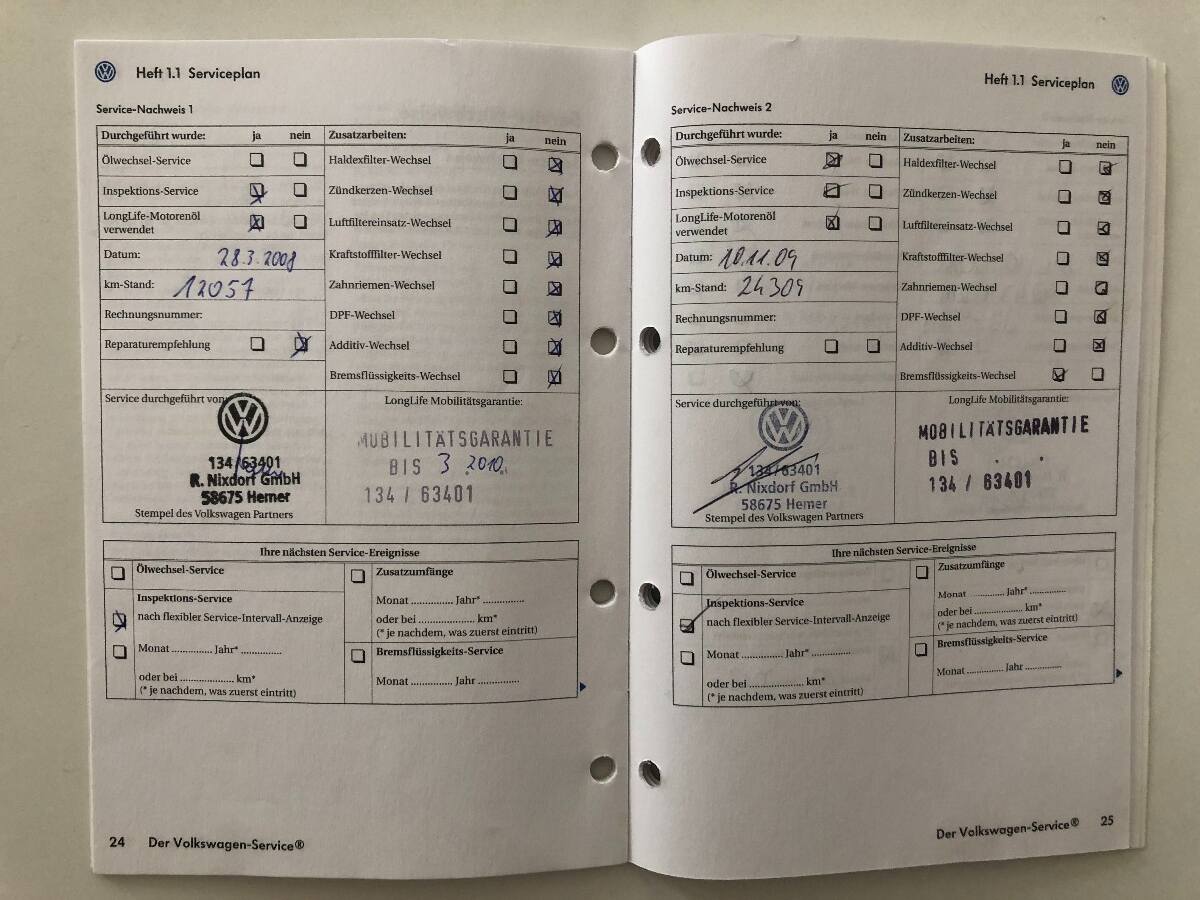 Heft 1.1 Serviceplan
Service-Nachweis 1
Durchgeführt wurde: ja nein
Ölwechsel-Service
Inspektions-Service
LongLife-Motorenöl
verwendet
Datum: 28.3.2008
km-Stand: 12057
Rechnungsnummer:
Reparaturempfehlung
Zusatzarbeiten: ja nein
Haldexfilter-Wechsel
Zündkerzen-Wechsel
Luftfiltereinsatz-Wechsel
Kraftstofffilter-Wechsel
Zahnriemen-Wechsel
DPF-Wechsel
Additiv-Wechsel
Bremsflüssigkeits-Wechsel
Service durchgeführt von:
134/63401
R. Nixdorf GmbH
58675 Hemer
Stempel des Volkswagen Partners
LongLife Mobilitätsgarantie:
MOBILITÄTSGARANTIE
BIS 3 2010
134 / 63401
Ihre nächsten Service-Ereignisse
Ölwechsel-Service
Inspektions-Service
nach flexibler Service-Intervall-Anzeige
Monat .............. Jahr* ..............
oder bei .................... km*
(* je nachdem, was zuerst eintritt)
Zusatzumfänge
Monat .............. Jahr* ..............
oder bei .................... km*
(* je nachdem, was zuerst eintritt)
Bremsflüssigkeits-Service
Monat .............. Jahr ..............
24 Der Volkswagen-Service®
Heft 1.1 Serviceplan
Service-Nachweis 2
Durchgeführt wurde: ja nein
Ölwechsel-Service
Inspektions-Service
LongLife-Motorenöl
verwendet
Datum: 10.11.09
km-Stand: 24309
Rechnungsnummer:
Reparaturempfehlung
Zusatzarbeiten: ja nein
Haldexfilter-Wechsel
Zündkerzen-Wechsel
Luftfiltereinsatz-Wechsel
Kraftstofffilter-Wechsel
Zahnriemen-Wechsel
DPF-Wechsel
Additiv-Wechsel
Bremsflüssigkeits-Wechsel
Service durchgeführt von:
134/63401
R. Nixdorf GmbH
58675 Hemer
Stempel des Volkswagen Partners
LongLife Mobilitätsgarantie:
MOBILITÄTSGARANTIE
BIS . .
134 / 63401
Ihre nächsten Service-Ereignisse
Ölwechsel-Service
Inspektions-Service
nach flexibler Service-Intervall-Anzeige
Monat .............. Jahr* ..............
oder bei .................... km*
(* je nachdem, was zuerst eintritt)
Zusatzumfänge
Monat .............. Jahr* ..............
oder bei .................... km*
(* je nachdem, was zuerst eintritt)
Bremsflüssigkeits-Service
Monat .............. Jahr ..............
Der Volkswagen-Service® 25